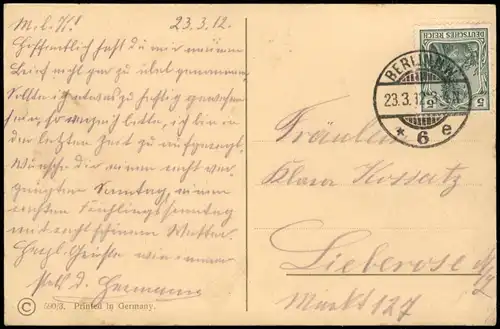 M. l. K!
23.3.12.
Hoffentlich hast du mir meinen
Brief nicht gar zu übel genommen,
Sollte ich etwas zu heftig gewesen
sein, so verzeih bitte, ich bin in
der letzten Zeit so aufgeregt.
Wünsche dir einen recht ver-
gnügten Sonntag, einen
rechten Frühlingssonntag
mit recht schönem Wetter.
Herzl. Grüsse wie immer
stets d. Hermann
© 590/3. Printed in Germany.
DEUTSCHES REICH
5 5
BERLIN
23.3.12
* 6 e
Fräulein
Klara Kossatz
Lieberose
Markt 127